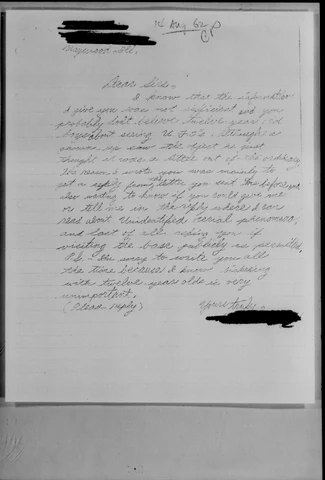 14 Aug 62
Dear Sirs,
I know that the information
I give you was not sufficient and you
probably don't believe twelve year old
boys about seeing U.F.O's. Although a
saw the object is just
thought it was a little out of the ordinary.
The reason I wrote you was mainly to
get an reply from the letter you sent
also wanting to know if you could give me
or tell me in the reply where I can
read about Unidentified aerial phenomena,
and last of all asking you if
visiting the base publicly is permitted.
P.S. I'm sorry to write you all
the time because I know
with twelve years olds is very
unimportant.
(Please reply)
Yours truly